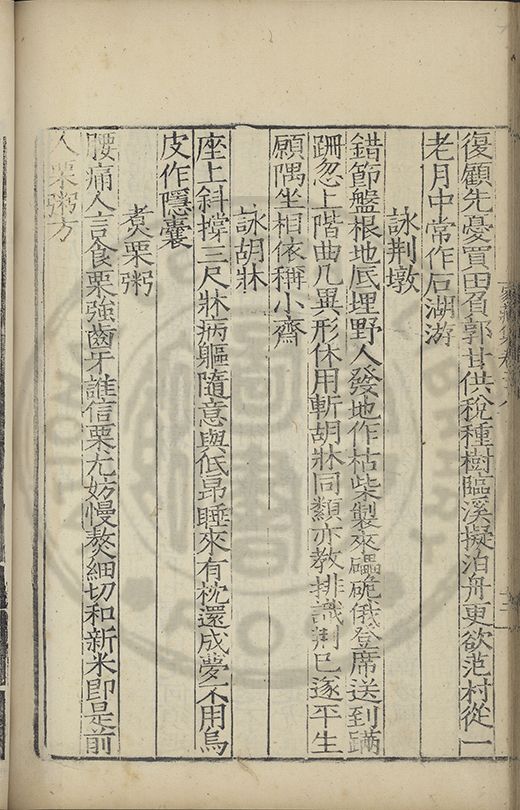 復顧先憂買田負郭甘供稅種樹臨溪擬泊舟更欲范村從一
老月中常作石湖游
詠荆墩
錯節盤根地底埋野人發地作枯柴製來礧硊俄登席送到蹣
跚忽上階曲几異形休用斬胡牀同類亦教排識荆已遂平生
願隅坐相依稱小齋
詠胡牀
座上斜撐三尺牀病軀隨意與低昂睡來有枕還成夢不用烏
皮作隱囊
煑栗粥
腰痛人言食栗強齒牙誰信栗尤妨慢熬細切和新米即是前
人栗粥方